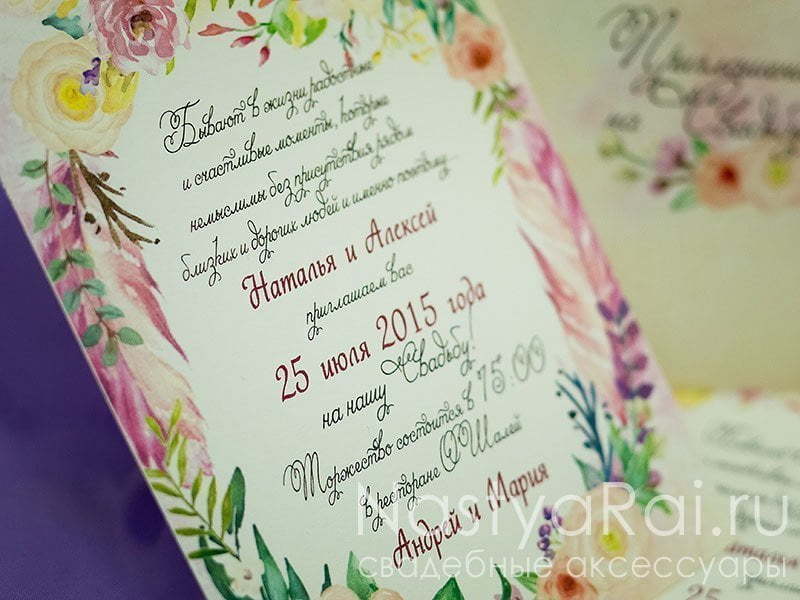 Бывают в жизни радостные
и счастливые моменты, которые
немыслимы без присутствия рядом
близких и дорогих людей и именно поэтому
Наталья и Алексей
приглашаем вас
25 июля 2015 года
на нашу Свадьбу!
Торжество состоится в 15:00
в ресторане О'Шалей
Андрей и Мария
Приглашение
на Свадьбу
NastyaRai.ru
свадебные аксессуары
25